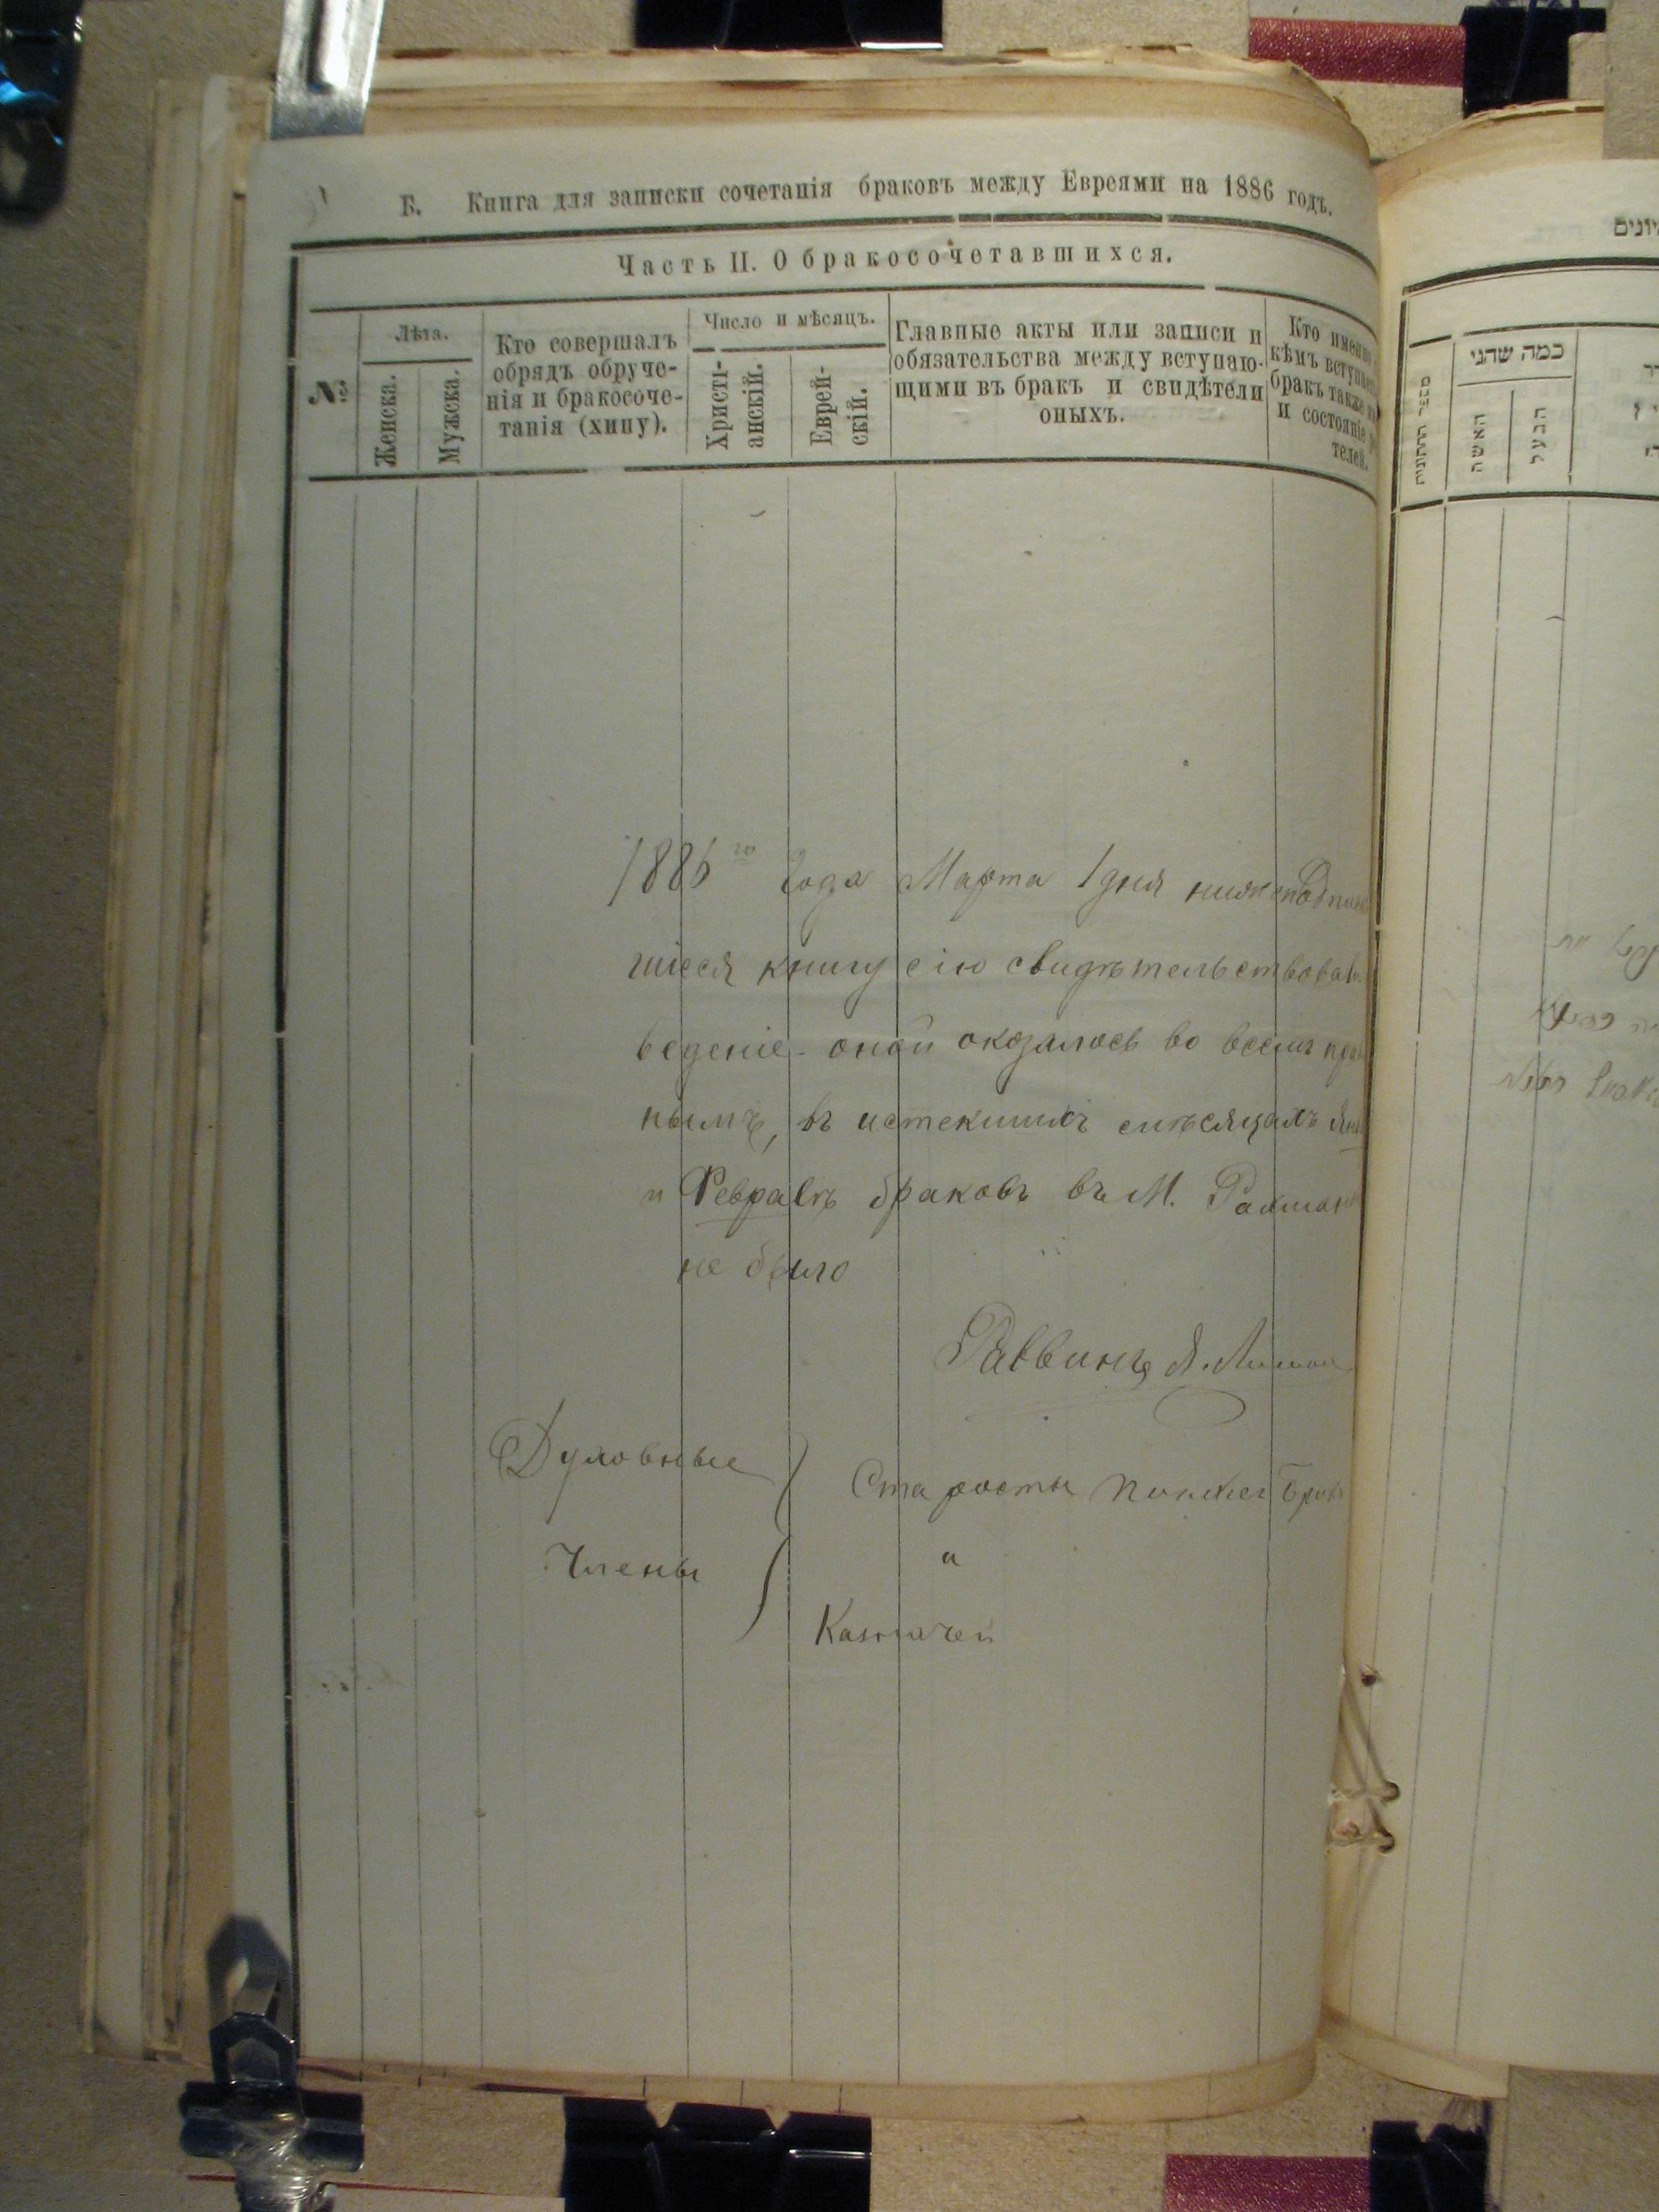 Б. Книга для записки сочетанія браковъ между Евреями на 1886 годъ.
Часть II. О бракосочетавшихся.
№
Лѣта.
Женска.
Мужска.
Кто совершалъ
обрядъ обруче-
нія и бракосоче-
танія (хупу).
Число и мѣсяцъ.
Христі-
анскій.
Еврей-
скій.
Главные акты или записи и
обязательства между вступаю-
щими въ бракъ и свидѣтели
оныхъ.
Кто именно
кѣмъ вступа
бракъ также
и состояніе
телей.
1886 го года Марта 1 дня нижеподпис
шіеся книгу сію свидѣтельствовали
веденіе оной оказалось во всемъ пра
нымъ, въ истекшихъ мѣсяцахъ Янв
и Февралѣ браковъ въ М.
не было
Раввинъ
Духовные
Старосты
Члены
и
Казначей
כמה שהני
מספר החתונית
האשה
הבעל